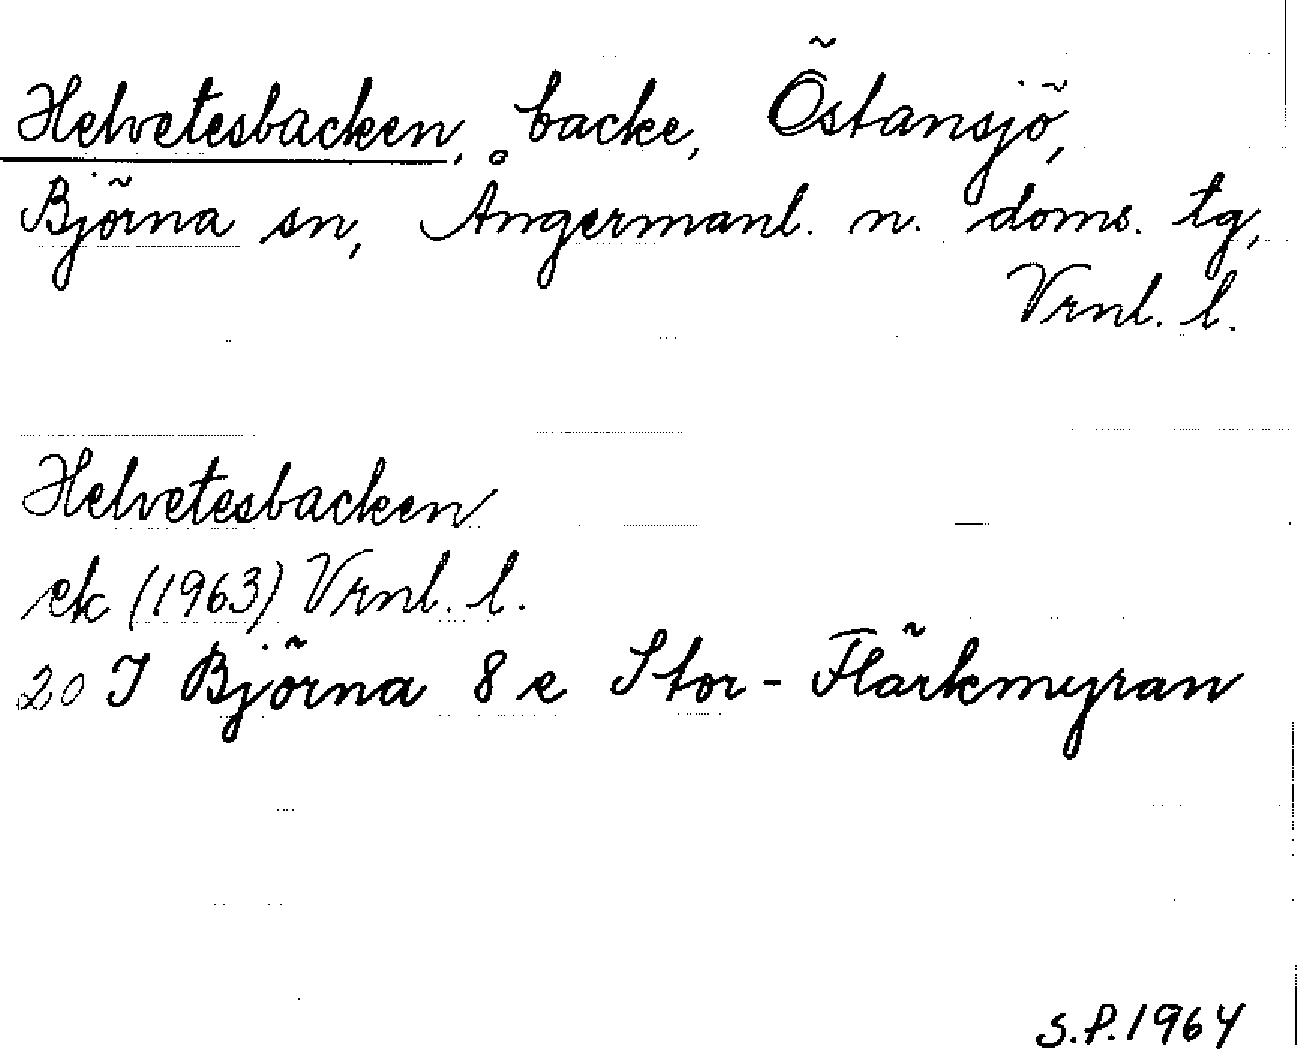 Helvetesbacken, backe, Östansjö,
Björna sn, Ångermanl. n. doms. tg,
Vrnl. l.
Helvetesbacken
ek (1963) Vrnl. l.
20 I Björna 8 e Stor-Flärkmyran
S.P.1964